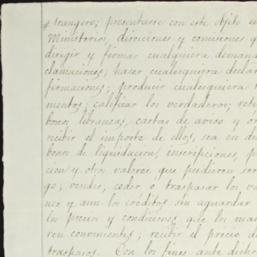 trangero; presentarse con este objeto en
Ministerios, direcciones y comisiones q
dirigir y firmar cualquiera demand
clamaciones; hacer cualesquiera declar
firmaciones; producir cualesquiera
mentos; calificar los verdaderos; reti
bones, libranzas, cartas de aviso y or
recibir el importe de ellos, sea en di
bonos de liquidacion, inscripciones, p
cion y otros valores que pudieren ser
go; vender, ceder o traspasar los va
nos y aun los créditos sin aguardar
los precios y condiciones que los man
ren convenientes; recibir el precio de
traspasos. Con los fines ante dichos